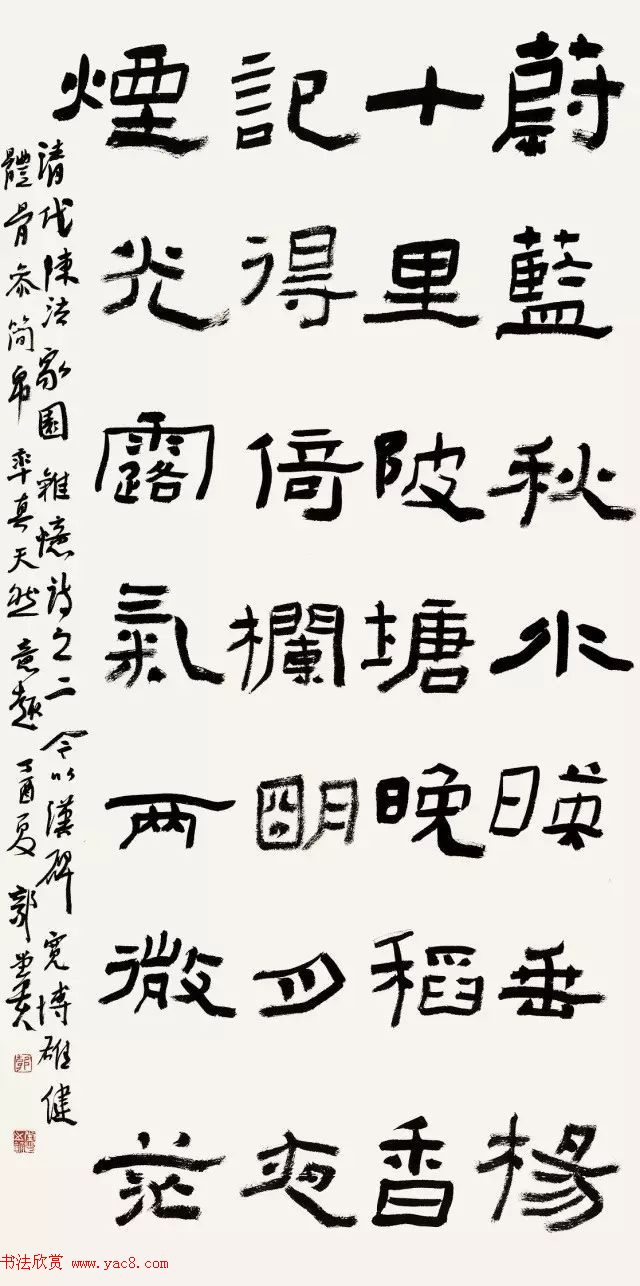 蔚藍秋水暎垂楊
十里陂塘晚稻香
記得倚欄明月夜
煙光露氣兩微茫
清代陳法家園雜憶詩之二 今以漢碑寬博雄健
體骨參簡帛率真天然意趣 丁酉夏 郭堂貴
书法欣赏 www.yac8.com